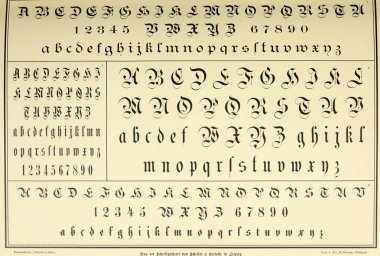 A B C D E F G H I K L M N O P Q R S T U
1 2 3 4 5 V W X Y Z 6 7 8 9 0
a b c d e f g h i j k l m n o p q r ſ t u v w x y z
A B C D E F G H I
K L M N O P Q R S
T U V W X Y Z
a b c d e f g h i k l m n
o p q r ſ t u v w x y z
1 2 3 4 5 6 7 8 9 0
A B C D E F G H I K L
M N O P Q R S T U V
a b c d e f W X Y Z g h i j k l
m n o p q r ſ t u v w x y z
A B C D E F G H I K L M N O P Q R S T U V
1 2 3 4 5 W X Y Z 6 7 8 9 0
a b c d e f g h i j k l m n o p q r ſ t u v w x y z
Aus der Schriftgießerei von Schelter & Giesecke in Leipzig.